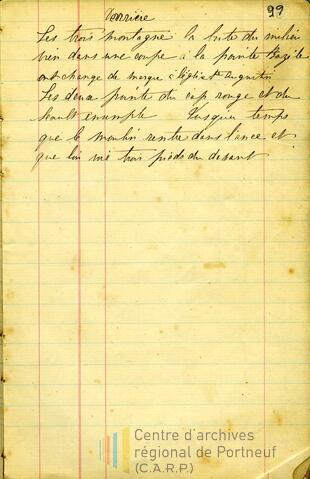 99
Verrière
Les trois montagne la bute du milieu
vien dans une coupe à la pointe Bazile
ont change de marque à l'église St Augustin
Les deux pointe du cap rouge et du
Sault ensemble Jusqu'au temps
que le moulin rentre dans l'ance et
que lon voi trois pieds du devant
Centre d'archives
régional de Portneuf
(C.A.R.P.)